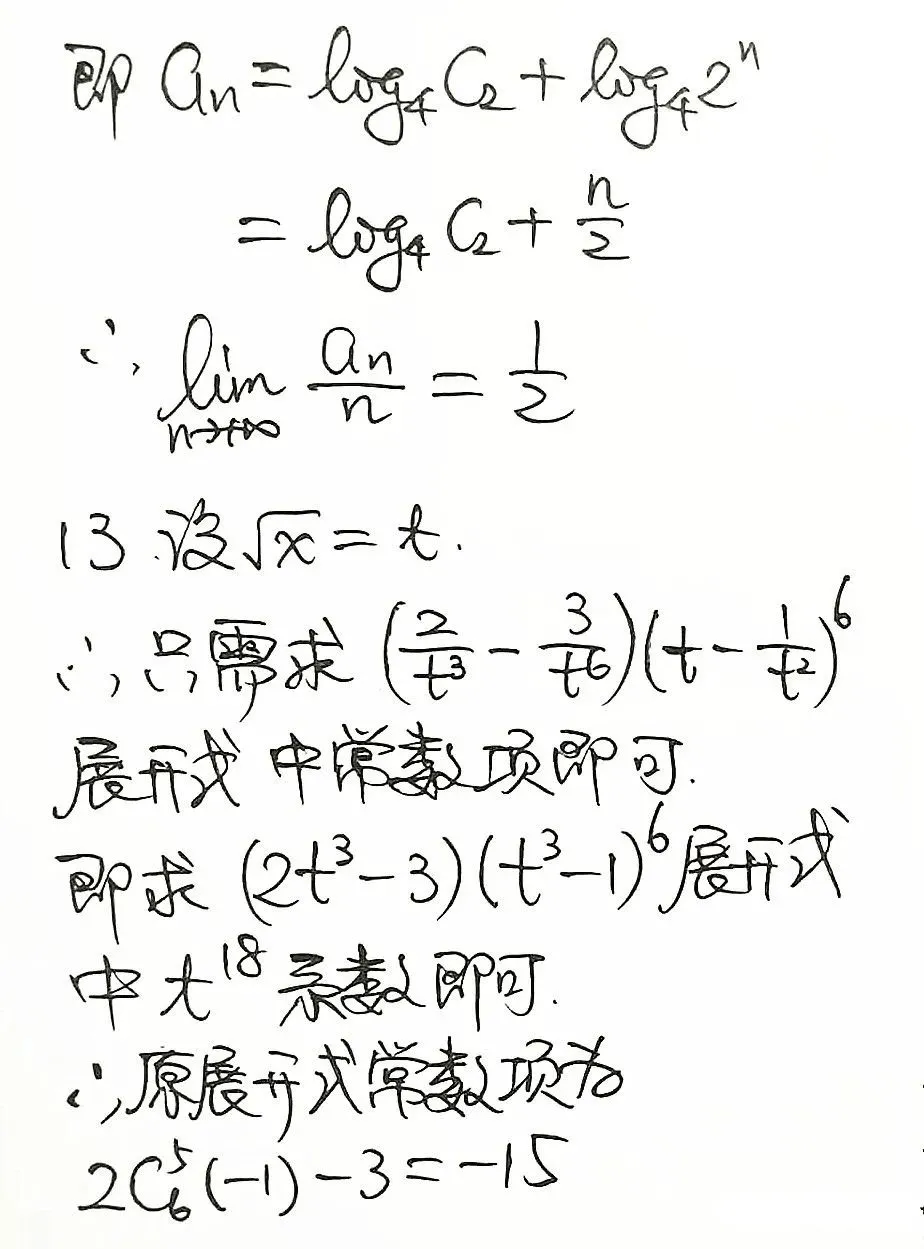 即 aₙ = log₄C₂ + log₄2ⁿ
= log₄C₂ + n/2
∴ lim_{n→+∞} aₙ/n = 1/2
13.设√x = t.
∴只需求 (2/t³ - 3/t⁶)(t - 1/t²)⁶
展开式中常数项即可.
即求 (2t³-3)(t³-1)⁶展开式
中t¹⁸系数即可.
∴原展开式常数项为
2C₆⁵(-1)-3=-15